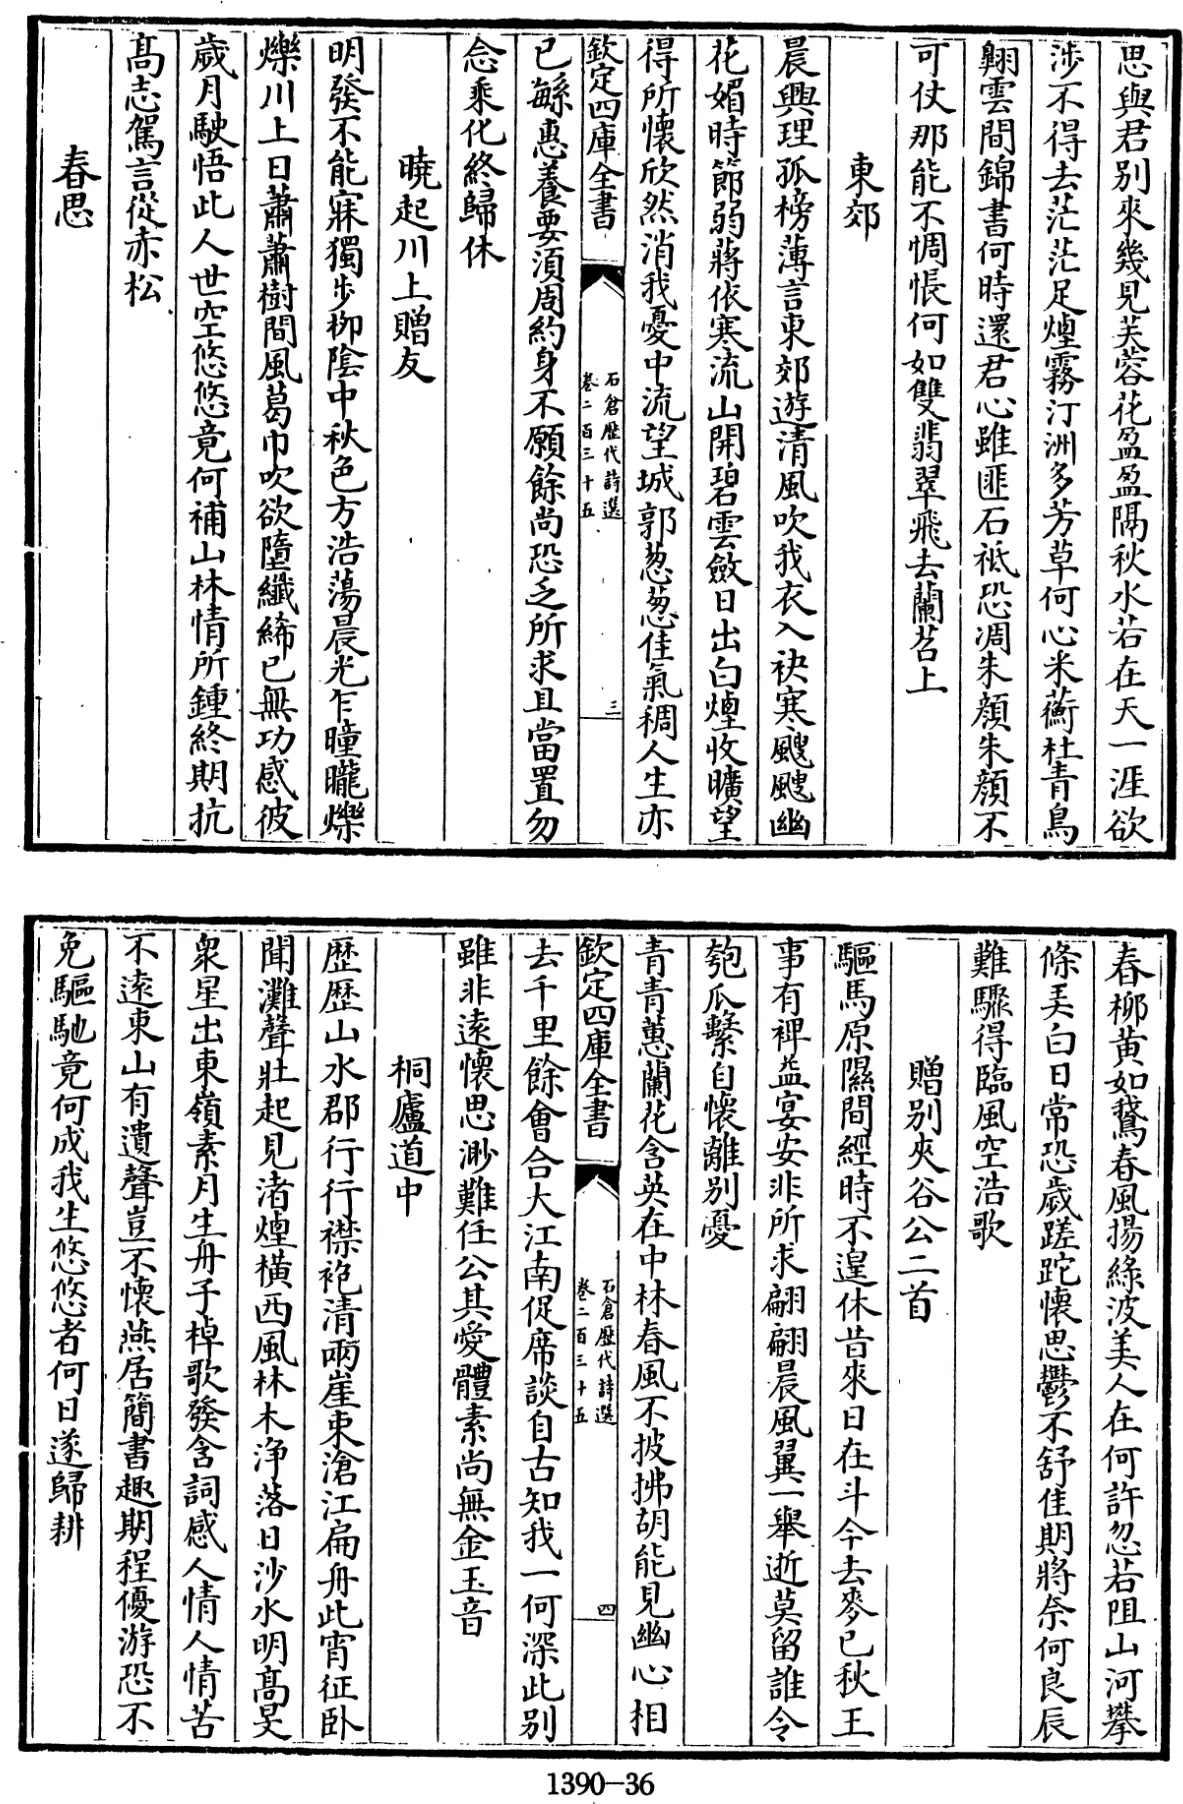 思與君别來幾見芙蓉花盈盈隔秋水若在天一涯欲
渉不得去茫茫足煙霧汀洲多芳草何心采蘅杜青鳥
翺雲間錦書何時還君心雖匪石祗恐凋朱顔朱顔不
可仗那能不惆悵何如雙翡翠飛去蘭苕上
東郊
晨興理孤榜薄言東郊遊清風吹我衣入袂寒颼颼幽
花媚時節弱蔣依寒流山開碧雲斂日出白煙收曠望
得所懐欣然消我憂中流望城郭葱葱佳氣稠人生亦
欽定四庫全書
石倉歴代詩選
卷二百三十五
三
已繇惠養要須周約身不願餘尚恐乏所求且當置勿
念乘化終歸休
曉起川上贈友
明發不能寐獨歩柳陰中秋色方浩蕩晨光乍曈曨爍
爍川上日蕭蕭樹間風葛巾吹欲墮纖絺已無功感彼
歲月駛悟此人世空悠悠竟何補山林情所鍾終期抗
髙志駕言從赤松
春思
春柳黄如鵞春風揚綠波美人在何許忽若阻山河攀
條美白日常恐歲蹉跎懐思鬱不舒佳期將奈何良辰
難驟得臨風空浩歌
贈别夾谷公二首
驅馬原隰間經時不遑休昔來日在斗今去麥已秋王
事有裨益宴安非所求翩翩晨風翼一舉逝莫留誰令
匏瓜繫自懐離别憂
青青蕙蘭花含英在中林春風不披拂胡能見幽心相
欽定四庫全書
石倉歴代詩選
卷二百三十五
四
去千里餘會合大江南促席談自古知我一何深此别
雖非逺懐思渺難任公其愛體素尚無金玉音
桐廬道中
歴歴山水郡行行襟袍清兩崖束滄江扁舟此宵征卧
聞灘聲壯起見渚煙横西風林木浄落日沙水明髙旻
衆星出東嶺素月生舟子棹歌發含詞感人情人情苦
不逺東山有遺聲豈不懐燕居簡書趣期程優游恐不
免驅馳竟何成我生悠悠者何日遂歸耕
1390-36